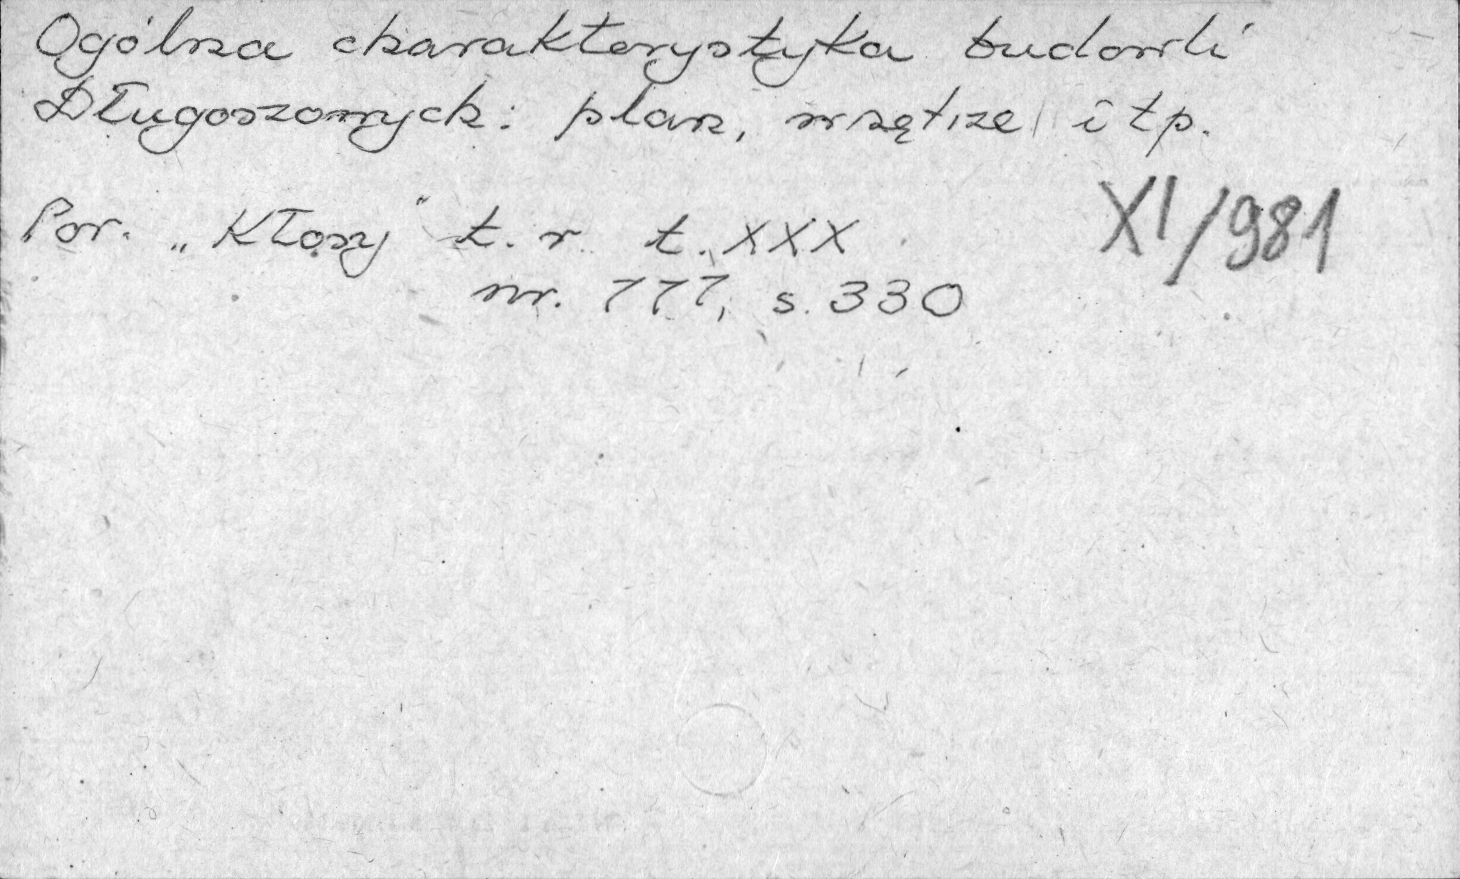 Ogólna charakterystyka budowli
Długoszowych: plan, wnętrze i t p.
Por. „Kłosy" t. r. t. XXX
XI/981
nr. 777, s. 330